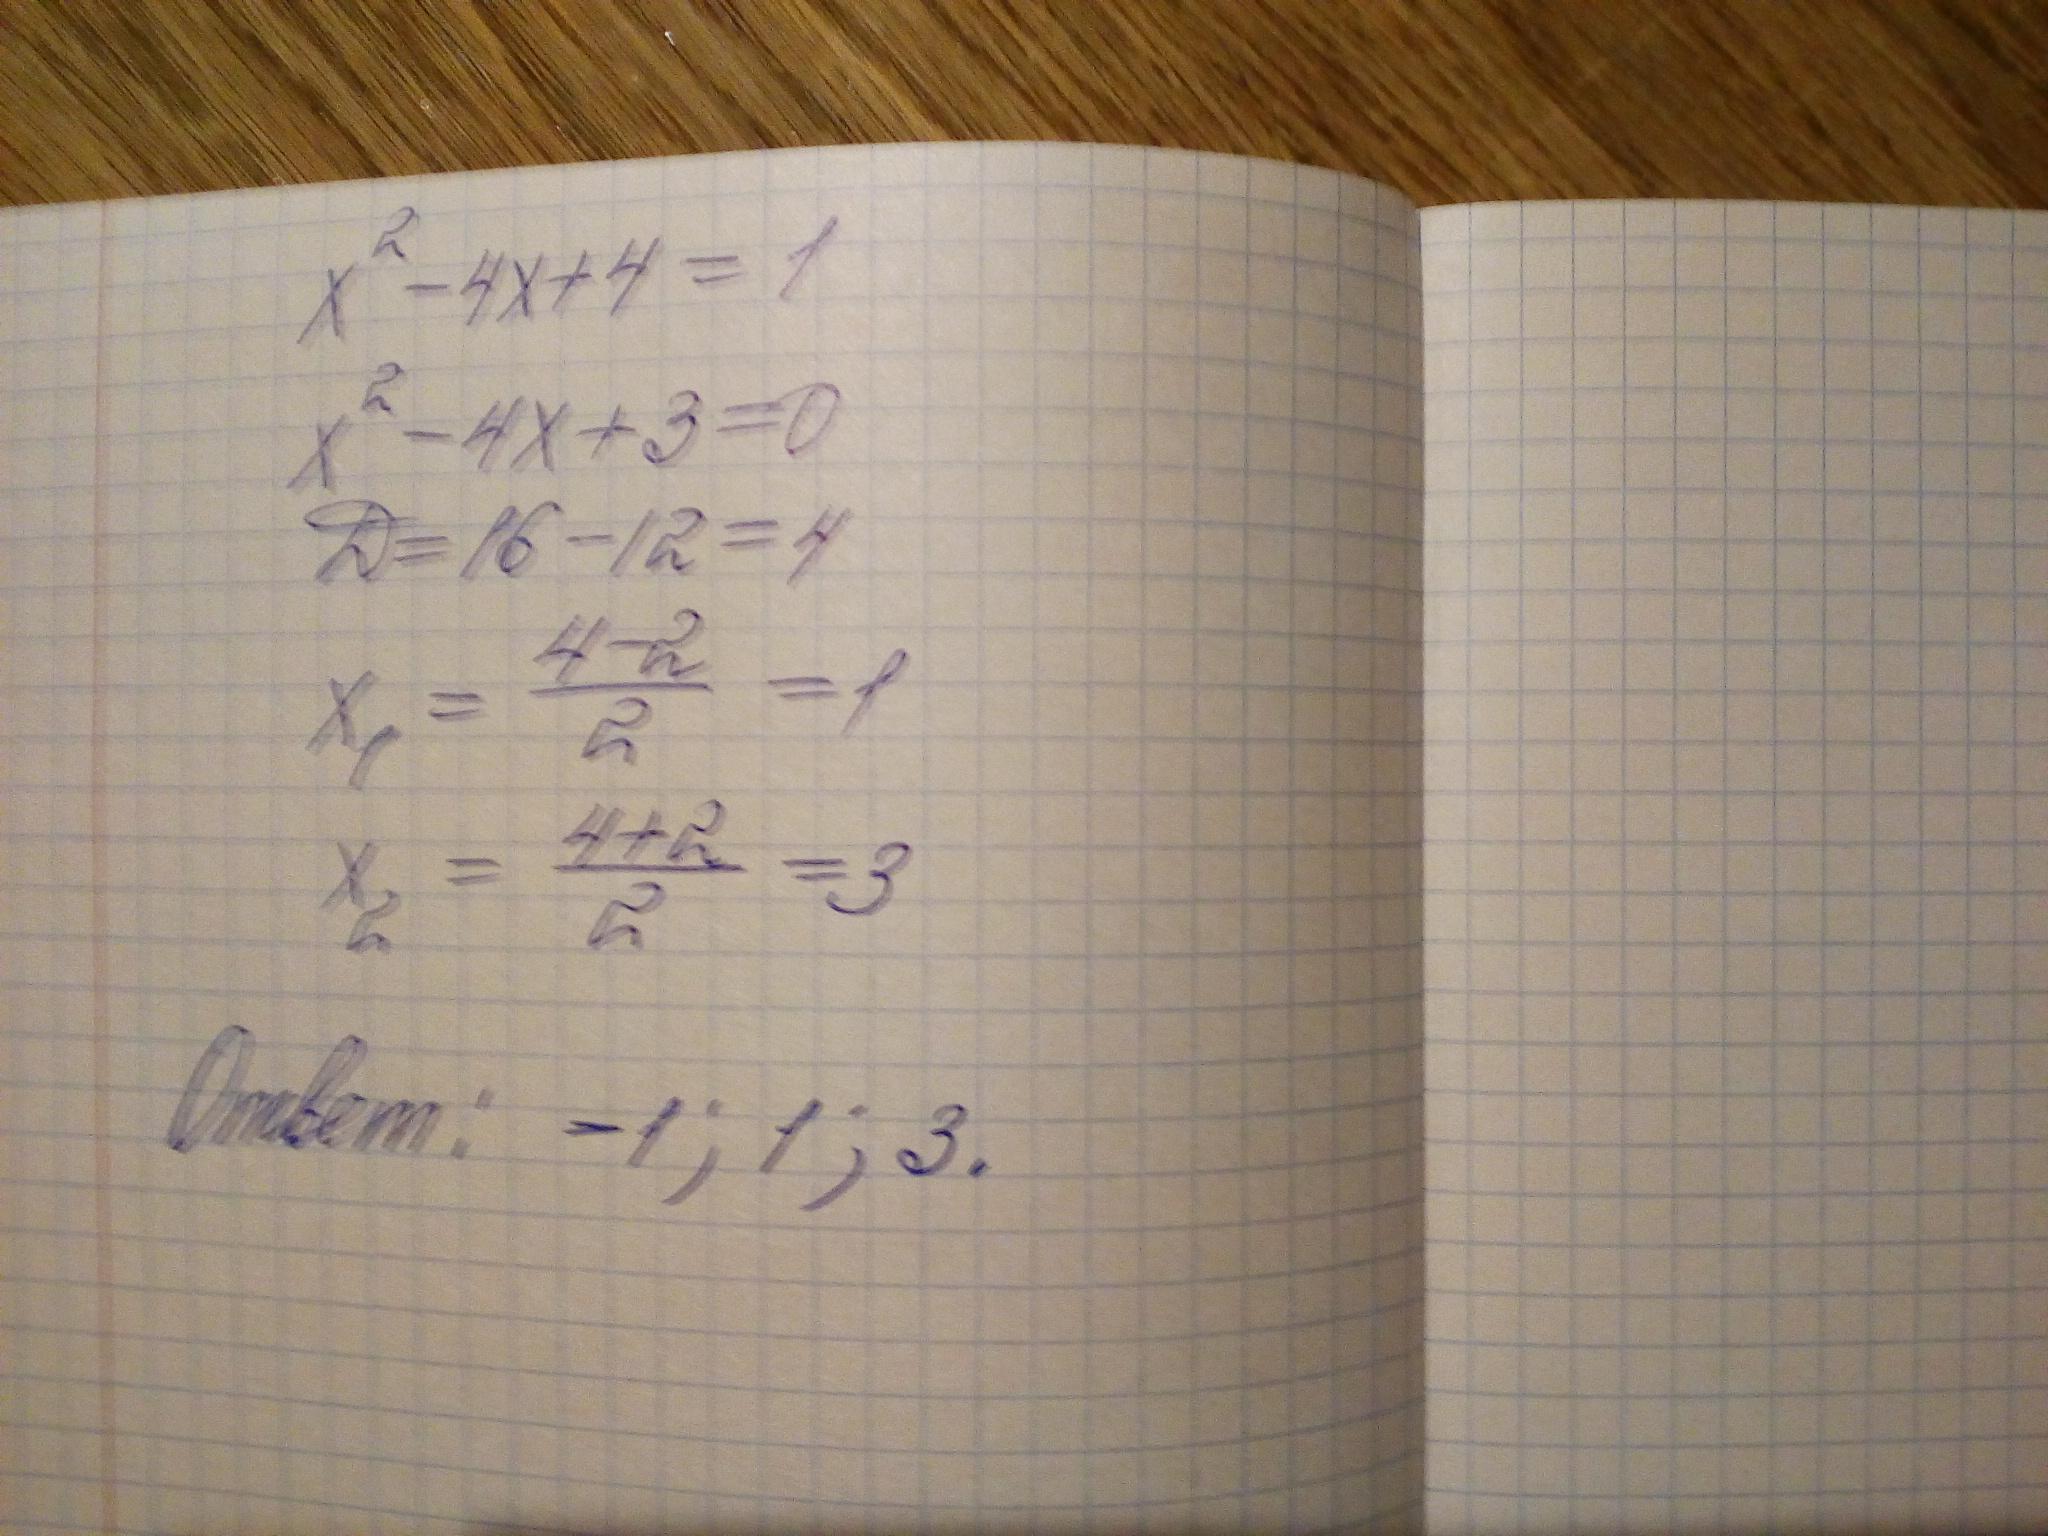 x² - 4x + 4 = 1
x² - 4x + 3 = 0
D = 16 - 12 = 4
x₁ = (4 - 2)/2 = 1
x₂ = (4 + 2)/2 = 3
Ответ: -1; 1; 3.